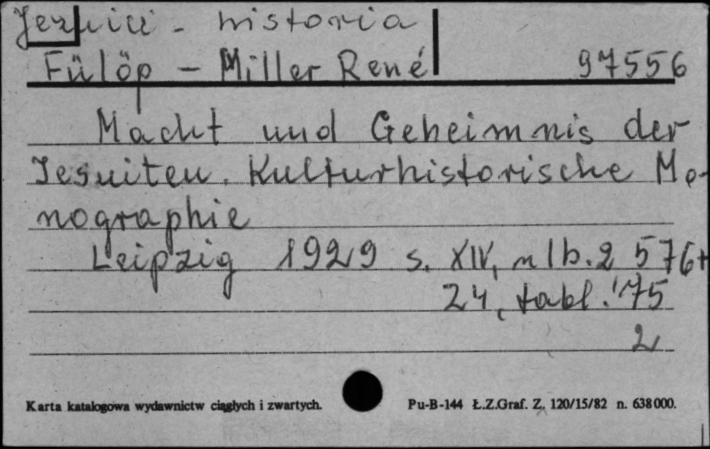 Jezuici - historia
Fülöp - Miller René 97556
Macht und Geheimnis der
Jesuiten. Kulturhistorische Mo-
nographie
Leipzig 1929 s. XIV, nlb. 2 576+
24, tabl. 75
2
Karta katalogowa wydawnictw ciągłych i zwartych. Pu-B-144 Ł.Z.Graf. Z. 120/15/82 n. 638000.